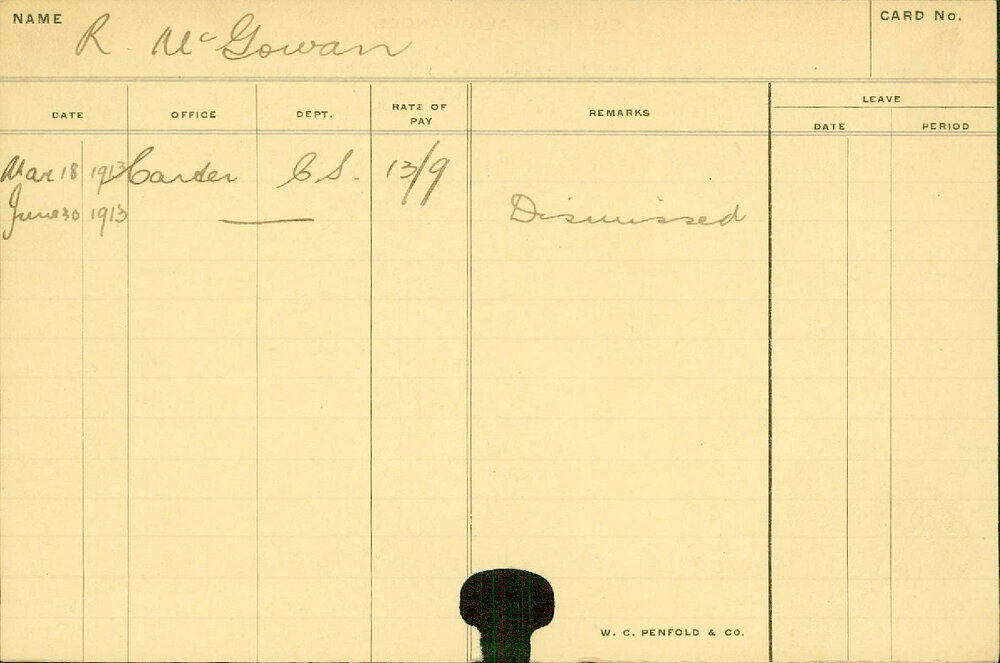 NAME R. McGowan CARD No.
DATE OFFICE DEPT. RATE OF PAY REMARKS LEAVE
DATE PERIOD
Mar 18 1913 Carter C S. 13/9
June 30 1913 — Dismissed
W. C. PENFOLD & CO.